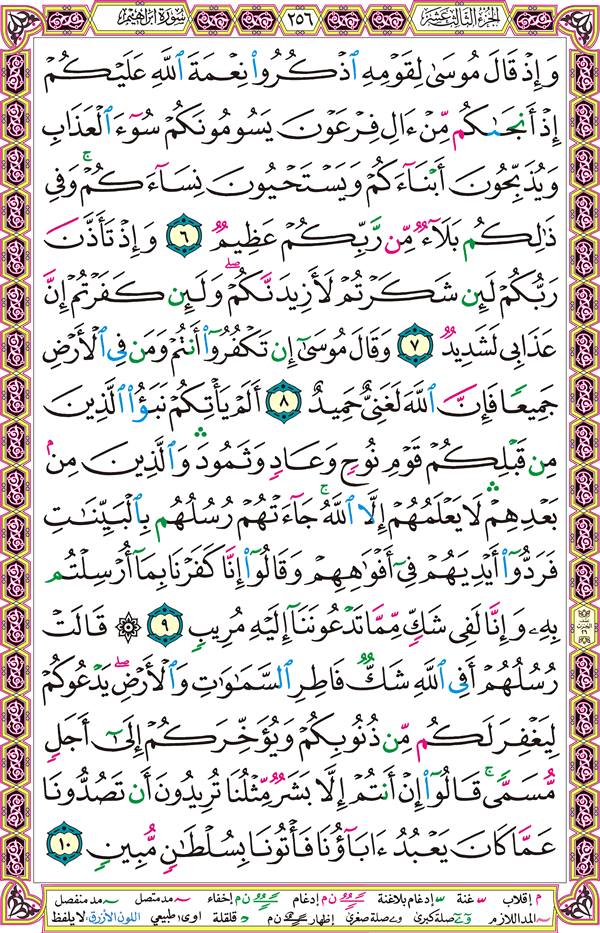 الجزء الثالث عشر ٢٥٦ سورة ابراهيم
وَإِذۡ قَالَ مُوسَىٰ لِقَوۡمِهِ ٱذۡكُرُواْ نِعۡمَةَ ٱللَّهِ عَلَيۡكُمۡ
إِذۡ أَنجَىٰكُم مِّنۡ ءَالِ فِرۡعَوۡنَ يَسُومُونَكُمۡ سُوٓءَ ٱلۡعَذَابِ
وَيُذَبِّحُونَ أَبۡنَآءَكُمۡ وَيَسۡتَحۡيُونَ نِسَآءَكُمۡۚ وَفِي
ذَٰلِكُم بَلَآءٞ مِّن رَّبِّكُمۡ عَظِيمٞ ٦ وَإِذۡ تَأَذَّنَ
رَبُّكُمۡ لَئِن شَكَرۡتُمۡ لَأَزِيدَنَّكُمۡۖ وَلَئِن كَفَرۡتُمۡ إِنَّ
عَذَابِي لَشَدِيدٞ ٧ وَقَالَ مُوسَىٰٓ إِن تَكۡفُرُوٓاْ أَنتُمۡ وَمَن فِي ٱلۡأَرۡضِ
جَمِيعٗا فَإِنَّ ٱللَّهَ لَغَنِيٌّ حَمِيدٌ ٨ أَلَمۡ يَأۡتِكُمۡ نَبَؤُاْ ٱلَّذِينَ
مِن قَبۡلِكُمۡ قَوۡمِ نُوحٖ وَعَادٖ وَثَمُودَ وَٱلَّذِينَ مِنۢ
بَعۡدِهِمۡ لَا يَعۡلَمُهُمۡ إِلَّا ٱللَّهُۚ جَآءَتۡهُمۡ رُسُلُهُم بِٱلۡبَيِّنَٰتِ
فَرَدُّوٓاْ أَيۡدِيَهُمۡ فِيٓ أَفۡوَٰهِهِمۡ وَقَالُوٓاْ إِنَّا كَفَرۡنَا بِمَآ أُرۡسِلۡتُم
بِهِۦ وَإِنَّا لَفِي شَكّٖ مِّمَّا تَدۡعُونَنَآ إِلَيۡهِ مُرِيبٖ ٩ ۞ قَالَتۡ
رُسُلُهُمۡ أَفِي ٱللَّهِ شَكّٞ فَاطِرِ ٱلسَّمَٰوَٰتِ وَٱلۡأَرۡضِۖ يَدۡعُوكُمۡ
لِيَغۡفِرَ لَكُم مِّن ذُنُوبِكُمۡ وَيُؤَخِّرَكُمۡ إِلَىٰٓ أَجَلٖ
مُّسَمّٗىۚ قَالُوٓاْ إِنۡ أَنتُمۡ إِلَّا بَشَرٞ مِّثۡلُنَا تُرِيدُونَ أَن تَصُدُّونَا
عَمَّا كَانَ يَعۡبُدُ ءَابَآؤُنَا فَأۡتُونَا بِسُلۡطَٰنٖ مُّبِينٖ ١٠
م إقلاب غنة إدغام بلاغنة ن م إدغام ن م إخفاء مد متصل مد منفصل
المد اللازم صلة كبرى صلة صغرى إظهار ن م قلقلة اوى طبيعي اللون الأزرق لا يلفظ